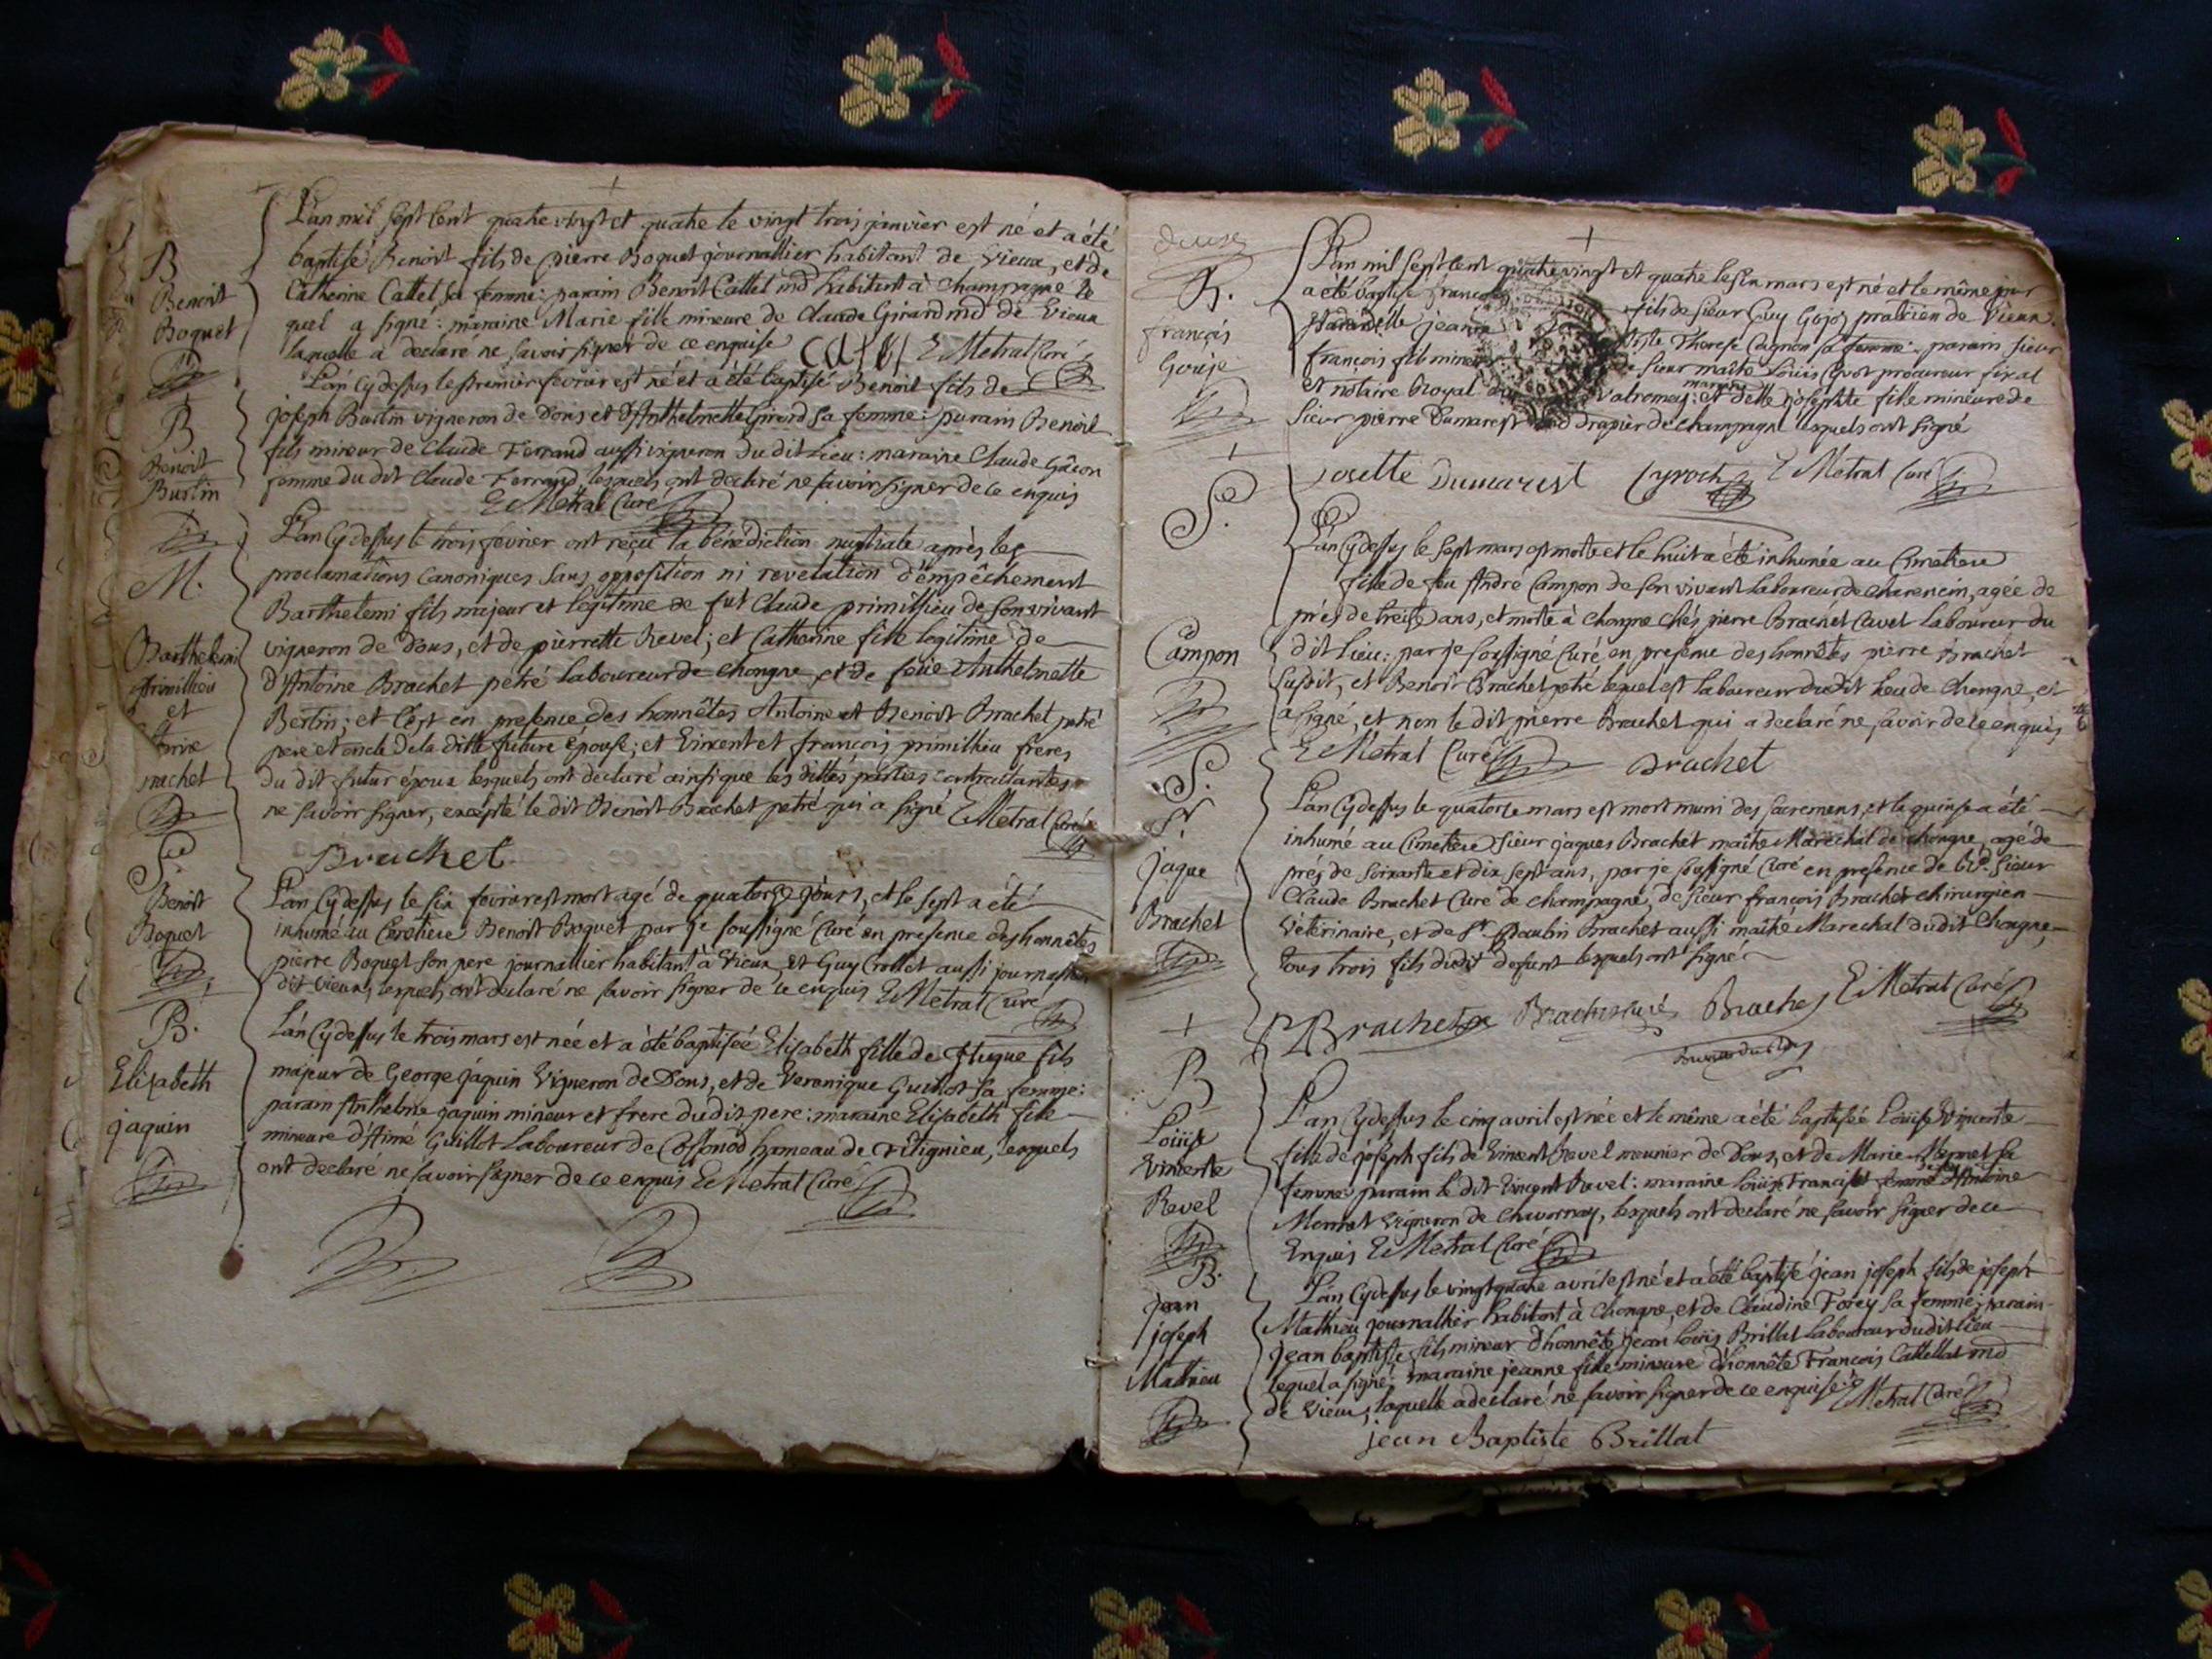 L'an mil sept cent quatre vingt et quatre le vingt trois janvier est né et a été
B
baptisé Benoit fils de pierre Boquet journallier habitant de Vieux, et de
Benoit
Catherine Callet sa femme: parain Benoit Callet md habitant à champagne le
Boquet
quel a signé: maraine Marie fille mineure de Claude Girard md de Vieux
laquelle a declaré ne savoir signer de ce enquise E Metral Curé
L'an Cydessus le premier fevrier est né et a été baptisé Benoit fils de
B
joseph Burtin vigneron de Dons et d'Anthelmette Girard sa femme: parain Benoit
Benoit
fils mineur de Claude Ferrand aussi vigneron du dit Lieu: maraine Claude
Burtin
femme du dit Claude Ferrand, lesquels ont declaré ne savoir signer de ce enquis
E Metral Curé
L'an Cydessus le trois fevrier ont reçu la bénédiction nuptiale après les
M.
proclamations Canoniques sans opposition ni revelation d'empêchement
Barthelemi fils majeur et legitime de fut Claude primillieu de son vivant
Barthelemi
vigneron de Dons, et de pierrette Revel; et Catherine fille legitime de
primillieu
d'Antoine Brachet petré laboureur de chongne et de feüe Anthelmette
et
Bertin; et C'est en presence des honnêtes Antoine et Benoit Brachet petré
pere et oncle de la ditte future épouse; et Vincent et françois primillieu freres
rachet
du dit futur époux lesquels ont déclaré ainsi que les dittes parties contractantes
ne savoir signer, excepté le dit Benoit Brachet petré qui a signé E Metral Curé
Brachet
S.re
Benoit
L'an Cydessus le six fevrier est mort agé de quatorze jours, et le sept a été
Boquet
inhumé au Cimetiere Benoit Boquet par je soussigné Curé en presence des honnêtes
pierre Boquet son pere journallier habitant à Vieux, et Guy Crollet aussi journallier
dit Vieux, lesquels ont declaré ne savoir signer de ce enquis E Metral Curé
B.
L'an Cydessus le trois mars est née et a été baptisée Elisabeth fille de Hugue fils
Elizabeth
majeur de George jaquin Vigneron de Dons, et de Veronique Guillot sa femme:
jaquin
parain Anthelme jaquin mineur et frere du dit pere: maraine Elisabeth fille
mineure d'Aimé Guillot Laboureur de Cossonod hameau de Vitignieu, lesquels
ont declaré ne savoir signer de ce enquis E Metral Curé
L'an mil sept cent quatre vingt et quatre le six mars est né et le même jour
B.
a été baptisé françois fils de sieur Guy Gojoz praticien de Vieux
françois
Goüje
françois fils mineur sieur maître Loüis procureur fiscal
et notaire Royal Valromey: maraine et delle josephte fille mineure de
sieur pierre Dumarest md drapier de champagne lesquels ont signé
josette Dumarest E Metral Curé
S.re
L'an Cydessus le sept mars est morte et le huit a été inhumée au Cimetiere
fille de feu André Campon de son vivant Laboureur de charencin, agée de
près de treise ans, et morte à chongne chés pierre Brachet Cavet laboureur du
Campon
dit Lieu: par je soussigné Curé en presence des honnêtes pierre Brachet
susdit, et Benoit Brachet petré lequel est laboureur du dit lieu de chongne, et
a signé, et non le dit pierre Brachet qui a declaré ne savoir de ce enquis
E Metral Curé Brachet
S.
S.r
L'an Cydessus le quatorse mars est mort muni des sacremens, et le quinse a été
jaque
inhumé au Cimetiere sieur jaques Brachet maître Maréchal de chongne, agé de
Brachet
près de soixante et dix sept ans, par je soussigné Curé en presence de Sieur
Claude Brachet Curé de champagne, de sieur françois Brachet chirurgien
véterinaire, et de Sr Paulin Brachet aussi maître Marechal du dit Chongne,
tous trois fils du dit defunt lesquels ont signé
Brachet Brachet curé Brachet E Metral Curé
B
L'an Cydessus le cinq avril est née et le même a été baptisée Loüise Vincente
Loüise
fille de joseph fils de Vincent Revel meunier de Dons, et de Marie Mornet sa
Vincente
femme: parain le dit Vincent Revel: maraine loüise françoise d'Antoine
Revel
Vigneron de Chavornay, lesquels ont declaré ne savoir signer de ce
Enquis E Metral Curé
B.
L'an Cydessus le vingt quatre avril est né et a été baptisé jean joseph fils de joseph
jean
Mathieu journallier habitant à Chongne, et de Claudine Forey sa femme: parain
joseph
jean baptiste fils mineur d'honnête jean loüis Brillat laboureur du dit lieu
Mathieu
lequel a signé: maraine jeanne fille mineure d'honnête François Callet md
de Vieux, laquelle a declaré ne savoir signer de ce enquise. E Metral Curé
jean Baptiste Brillat